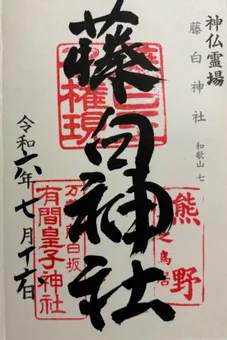 神仏霊場
藤白神社
和歌山 七
藤白神社
権現
熊野
之鳥居
藤白坂
有間皇子神社
令和六年 七月十六日